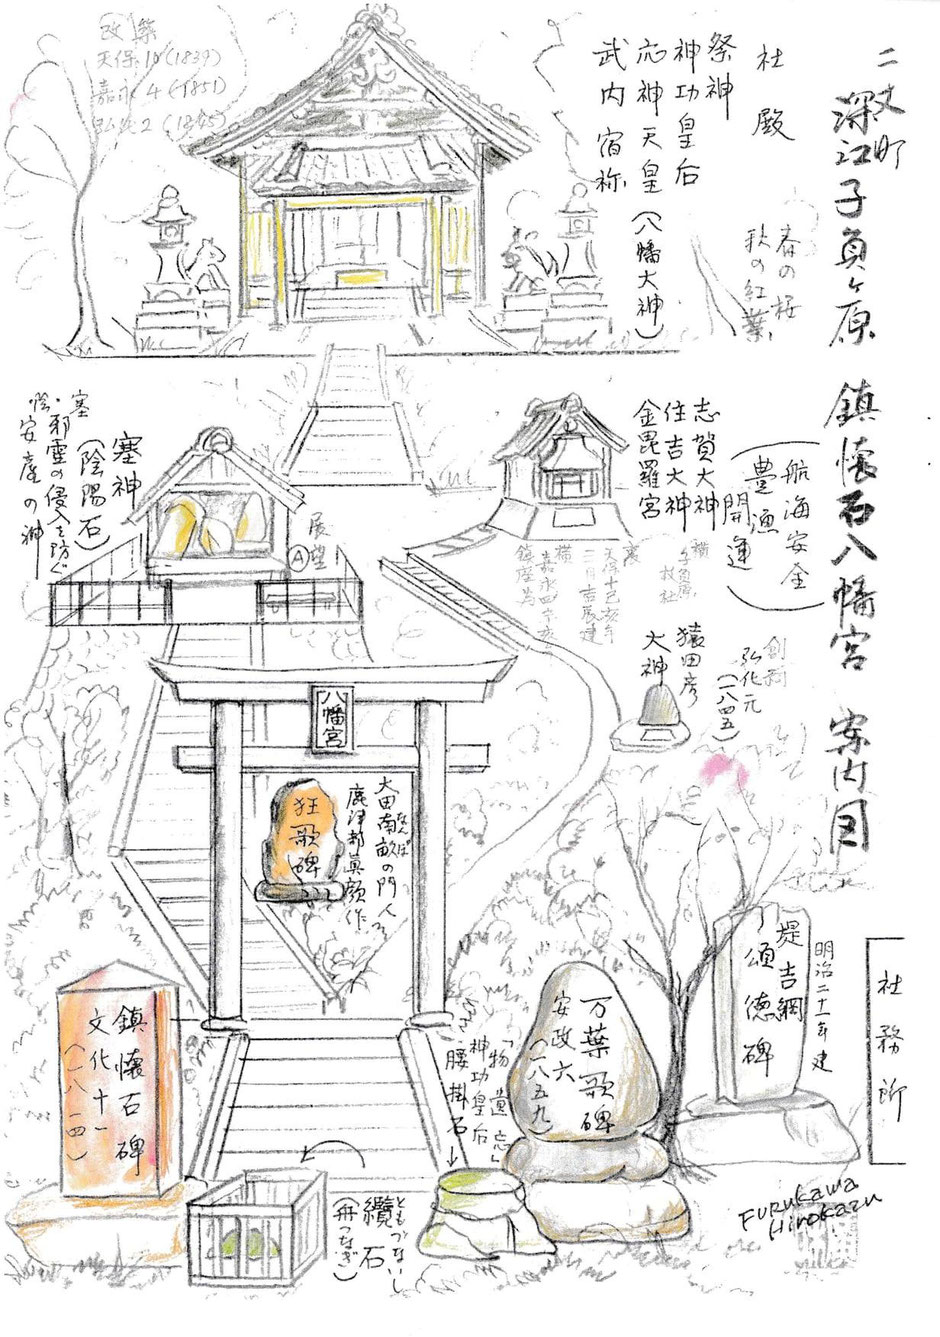 二丈町
深江子負ケ原 鎮懐石八幡宮 案内図
社殿
祭神
神功皇后
応神天皇(八幡大神)
武内宿祢
春の桜
秋の紅葉
改築
天保10(1839)
嘉永4(1851)
弘化2(1845)
志賀大神
住吉大神
金毘羅宮
(航海安全
豊漁
開運)
塞神
(陰陽石)
塞・邪霊の侵入を防ぐ
陰・安産の神
展望
A
猿田彦
大神
創剏
弘化元
(一八四五)
八幡宮
狂歌碑
大田南畝の門人
なんぽ
鹿津部真顔作
鎮懐石碑
文化十一
(一八一四)
ともづないし
纜石
(舟つなぎ)
「物遺忘」
神功皇后
腰掛石
万葉歌碑
安政六
(一八五九)
堤吉綱
頌徳碑
明治二十一年建
社務所
Furukawa
Hirokazu